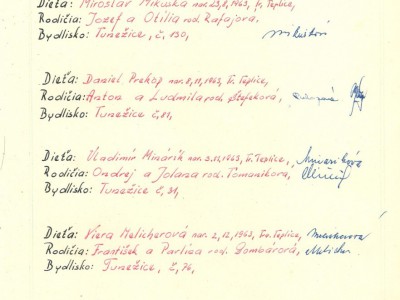 Dieťa: Miroslav Mikuška nar. 23,8,1963, Tr. Teplice,
Rodičia: Jozef a Otília rod. Rafajora.
Bydlisko: Tunežice, č, 130,
Dieťa: Daniel Prekop nar. 8,11,1963, Tr. Teplice,
Rodičia: Anton a Ludmila rod, Štefeková,
Bydlisko: Tunežice č, 81,
Dieťa: Vladimír Minárik nar. 3.12.1963, Tr. Teplice,
Rodičia: Ondrej a Jolana rod. Tomaníkova,
Bydlisko: Tunežice č, 31,
Dieťa: Viera Melicherová nar. 2,12,1963, Tr. Teplice,
Rodičia: František a Parlína rod. Gombárová,
Bydlisko: Tunežice, č, 76,